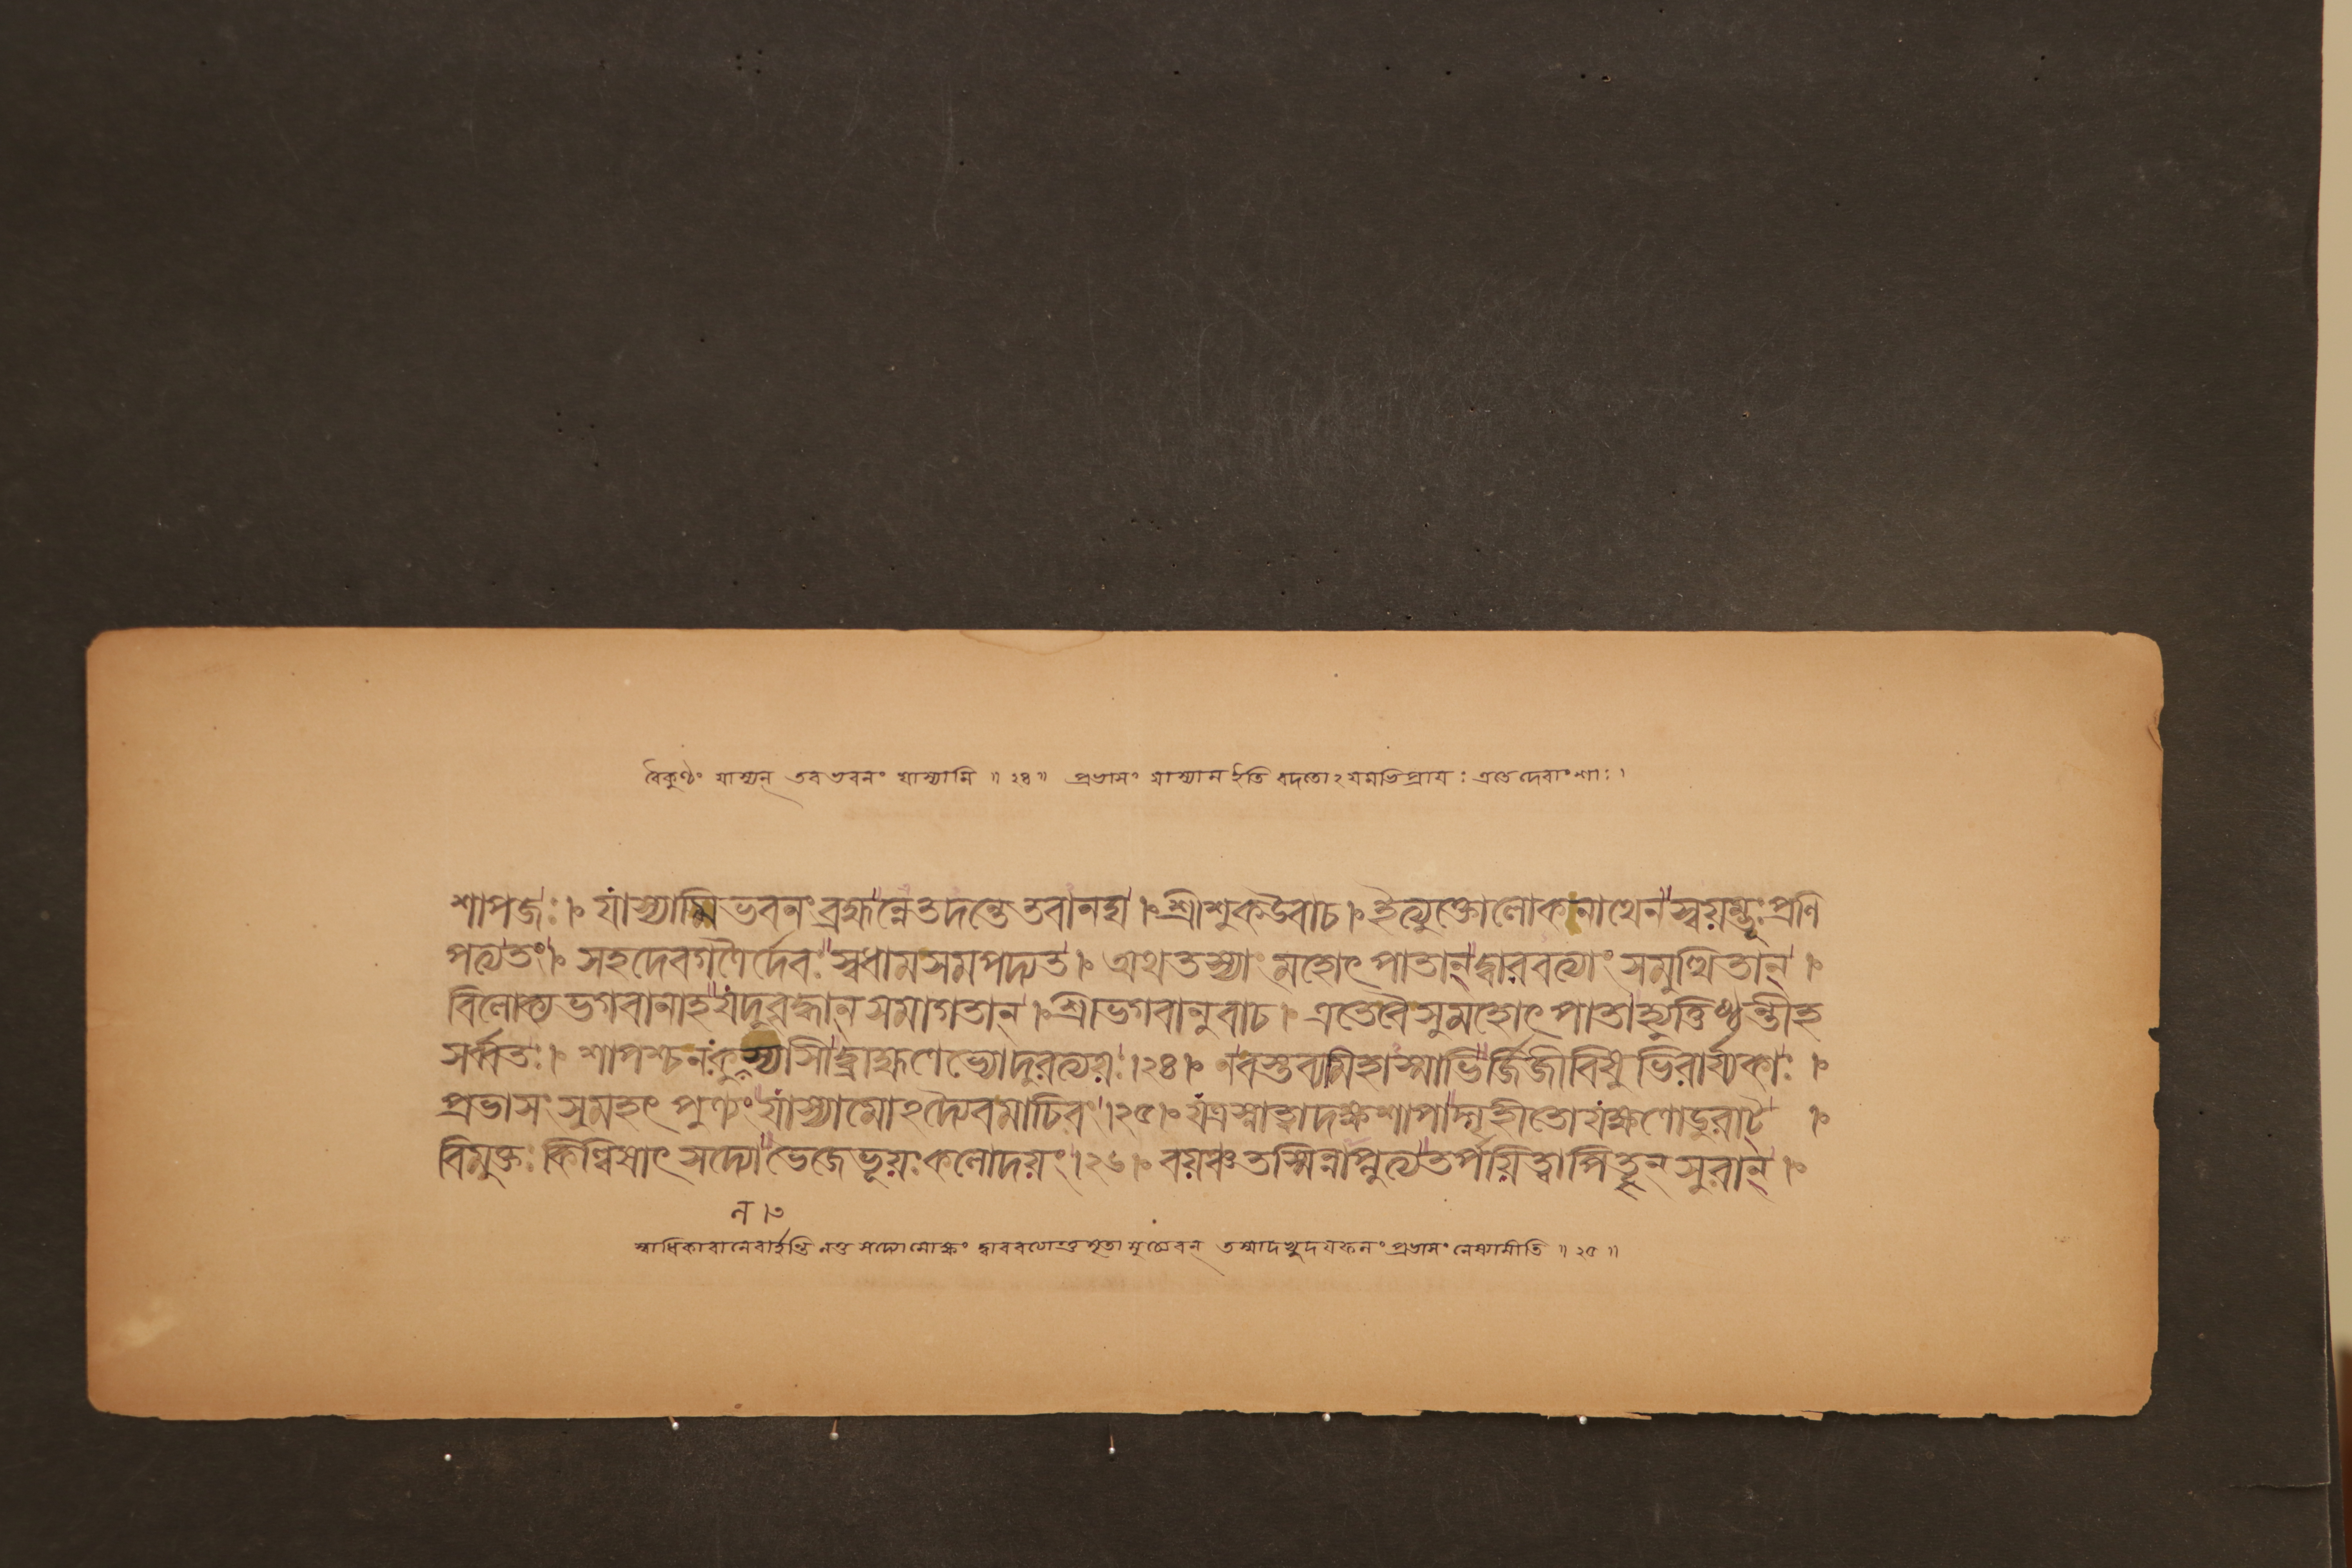 বৈকুণ্ঠং যাস্যন্ তব ভবনং যাস্যামি ॥ ২৪ ॥ প্রভাসং যাস্যাম ইতি বদতোঽযমভিপ্রায়ঃ এতে দেবাংশাঃ ।
শাপজঃ । যাস্যামি ভবনং ব্রহ্মন্নেতদন্তে তবানদ্য । শ্রীশুকউবাচ । ইত্যুক্তোলোকনাথেন স্বয়ম্ভূঃ প্রণি
পত্যতং । সহদেবগণৈর্দেবঃ স্বধামসমপদ্যত । অথ তস্যাং মহোৎপাতান্ দ্বারবত্যাং সমুত্থিতান্ ।
বিলোক্য ভগবানাহ যদুবৃদ্ধান্ সমাগতান্ । শ্রীভগবানুবাচ । এতেবৈ সুমহোৎপাতাহ্যুত্তিষ্ঠন্তীহ
সর্ব্বতঃ । শাপশ্চ নঃ কুলস্যাসীদ্ব্রাহ্মণেভ্যোদুরত্যয়ঃ । ২৪ । নবস্তব্যমিহাস্মাভির্জিজীবিষুভিরার্য্যকাঃ ।
প্রভাসং সুমহৎ পুণ্যং যাস্যামোঽদ্যৈবমাচিরং । ২৫ । যত্রস্নাত্বাদক্ষশাপাদ্গৃহীতোযক্ষ্মণোডুরাট্ ।
বিমুক্তঃ কিল্বিষাৎ সদ্যো ভেজেভূয়ঃ কলোদয়ং । ২৬ । বয়ঞ্চ তস্মিন্নাপ্লুত্যতর্পয়িত্বাপিতৄন্ সুরান্ ।
ল । ৩
স্বাধিকারানেবার্হন্তি নতু সদ্যোমোক্ষং তস্মাদভ্যুদয়ফলং প্রভাসং নেষ্যামীতি ॥ ২৫ ॥